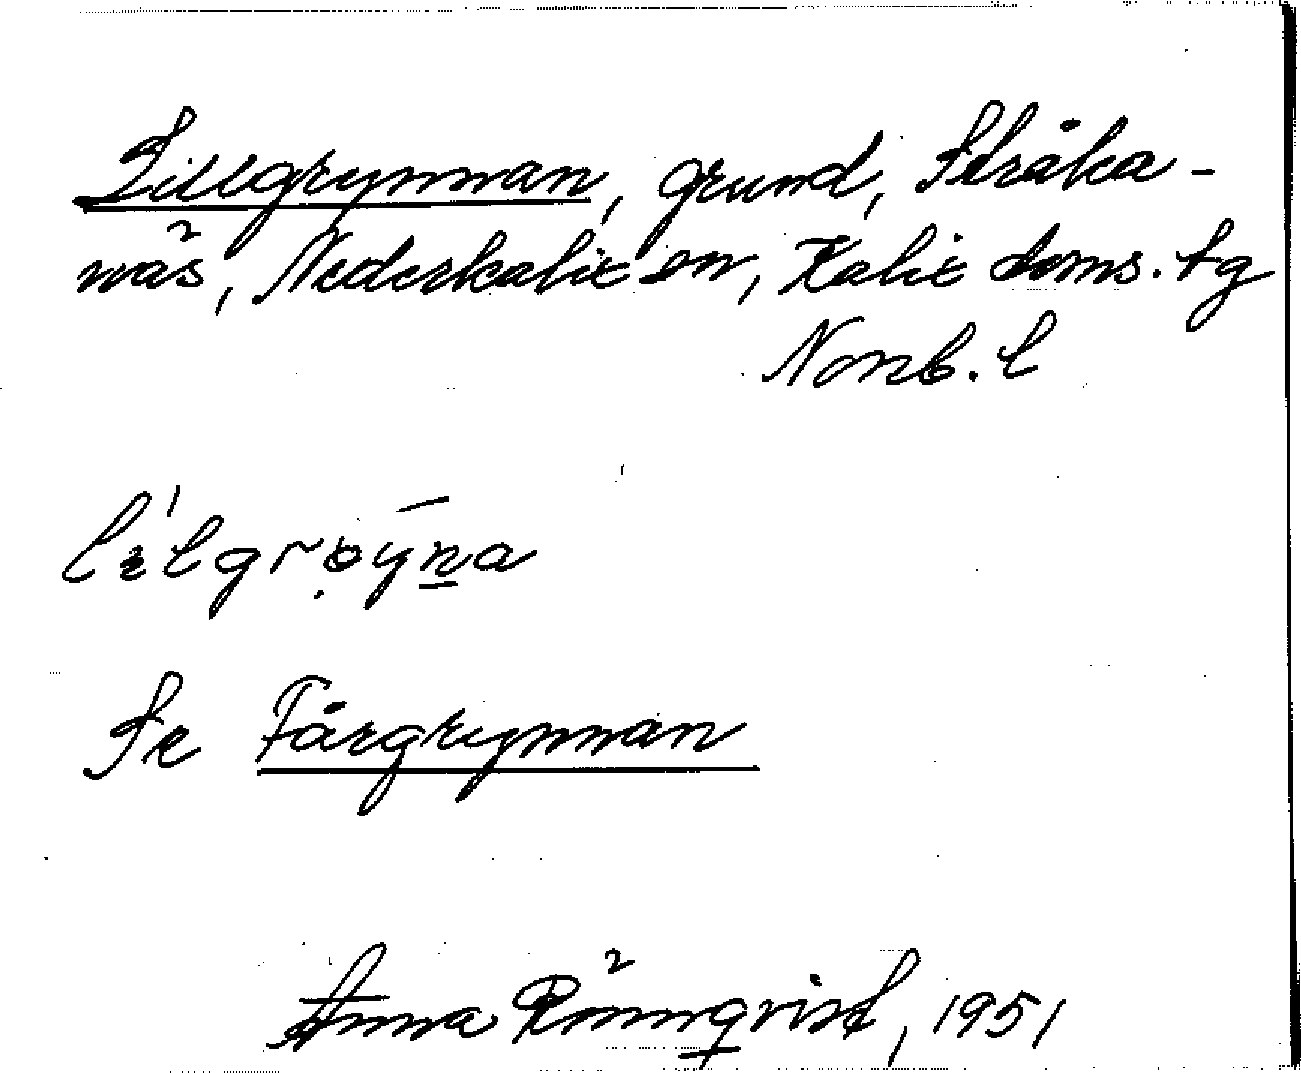 Lillgrynnan, grund, Stråka-
näs, Nederkalix sn, Kalix doms. tg
Norrb. l
lılgrøýn̲a
Se Fårgrynnan
Anna Rönnqvist, 1951